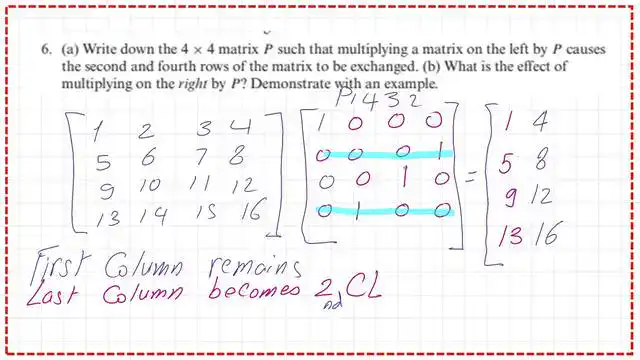 6. (a) Write down the 4 × 4 matrix P such that multiplying a matrix on the left by P causes
the second and fourth rows of the matrix to be exchanged. (b) What is the effect of
multiplying on the right by P? Demonstrate with an example.
P1432
1 2 3 4 1 0 0 0 1 4
5 6 7 8 0 0 0 1 5 8
9 10 11 12 0 0 1 0 = 9 12
13 14 15 16 0 1 0 0 13 16
First Column remains
Last Column becomes 2nd CL